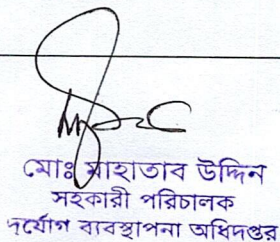 মোঃ মাহাতাব উদ্দিন
সহকারী পরিচালক
দুর্যোগ ব্যবস্থাপনা অধিদপ্তর